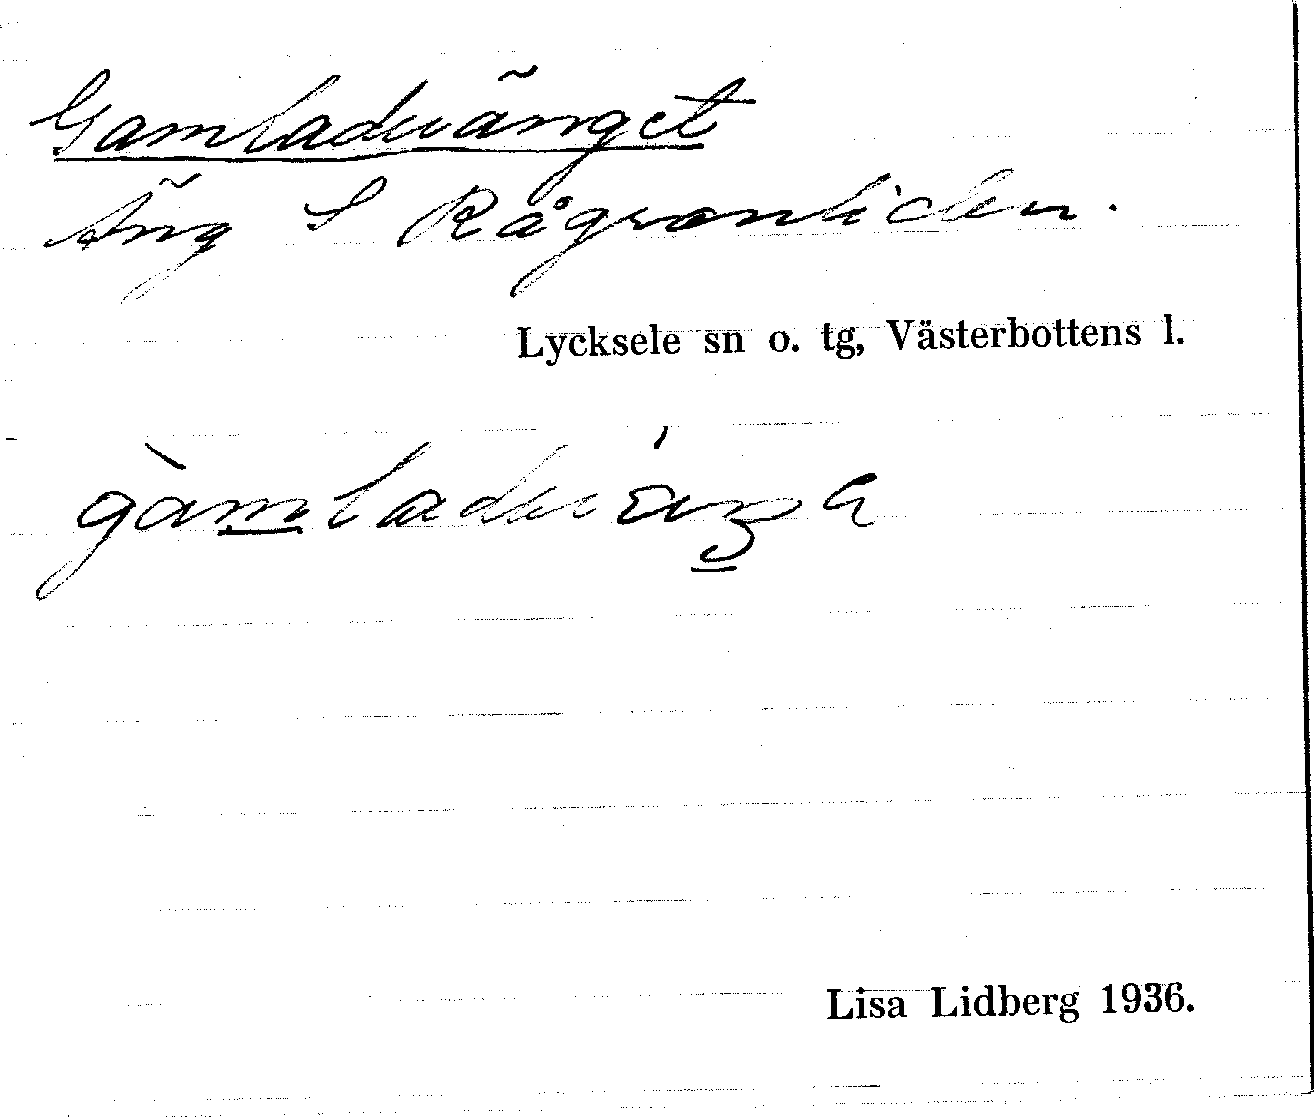 Gamladuänget
Äng S Rågranliden.
Lycksele sn o. tg, Västerbottens l.
Lisa Lidberg 1936.